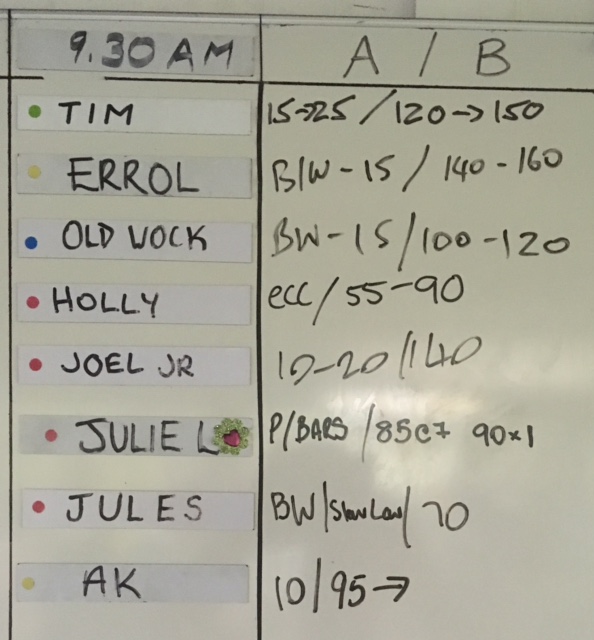 9.30 AM A / B
TIM 15→25 / 120→150
ERROL B/W - 15 / 140 - 160
OLD WOCK BW - 15 / 100 - 120
HOLLY ecc / 55-90
JOEL JR 10-20 / 140
JULIE L P/BARS / 85 90x1
JULES BW / / 70
AK 10 / 95→